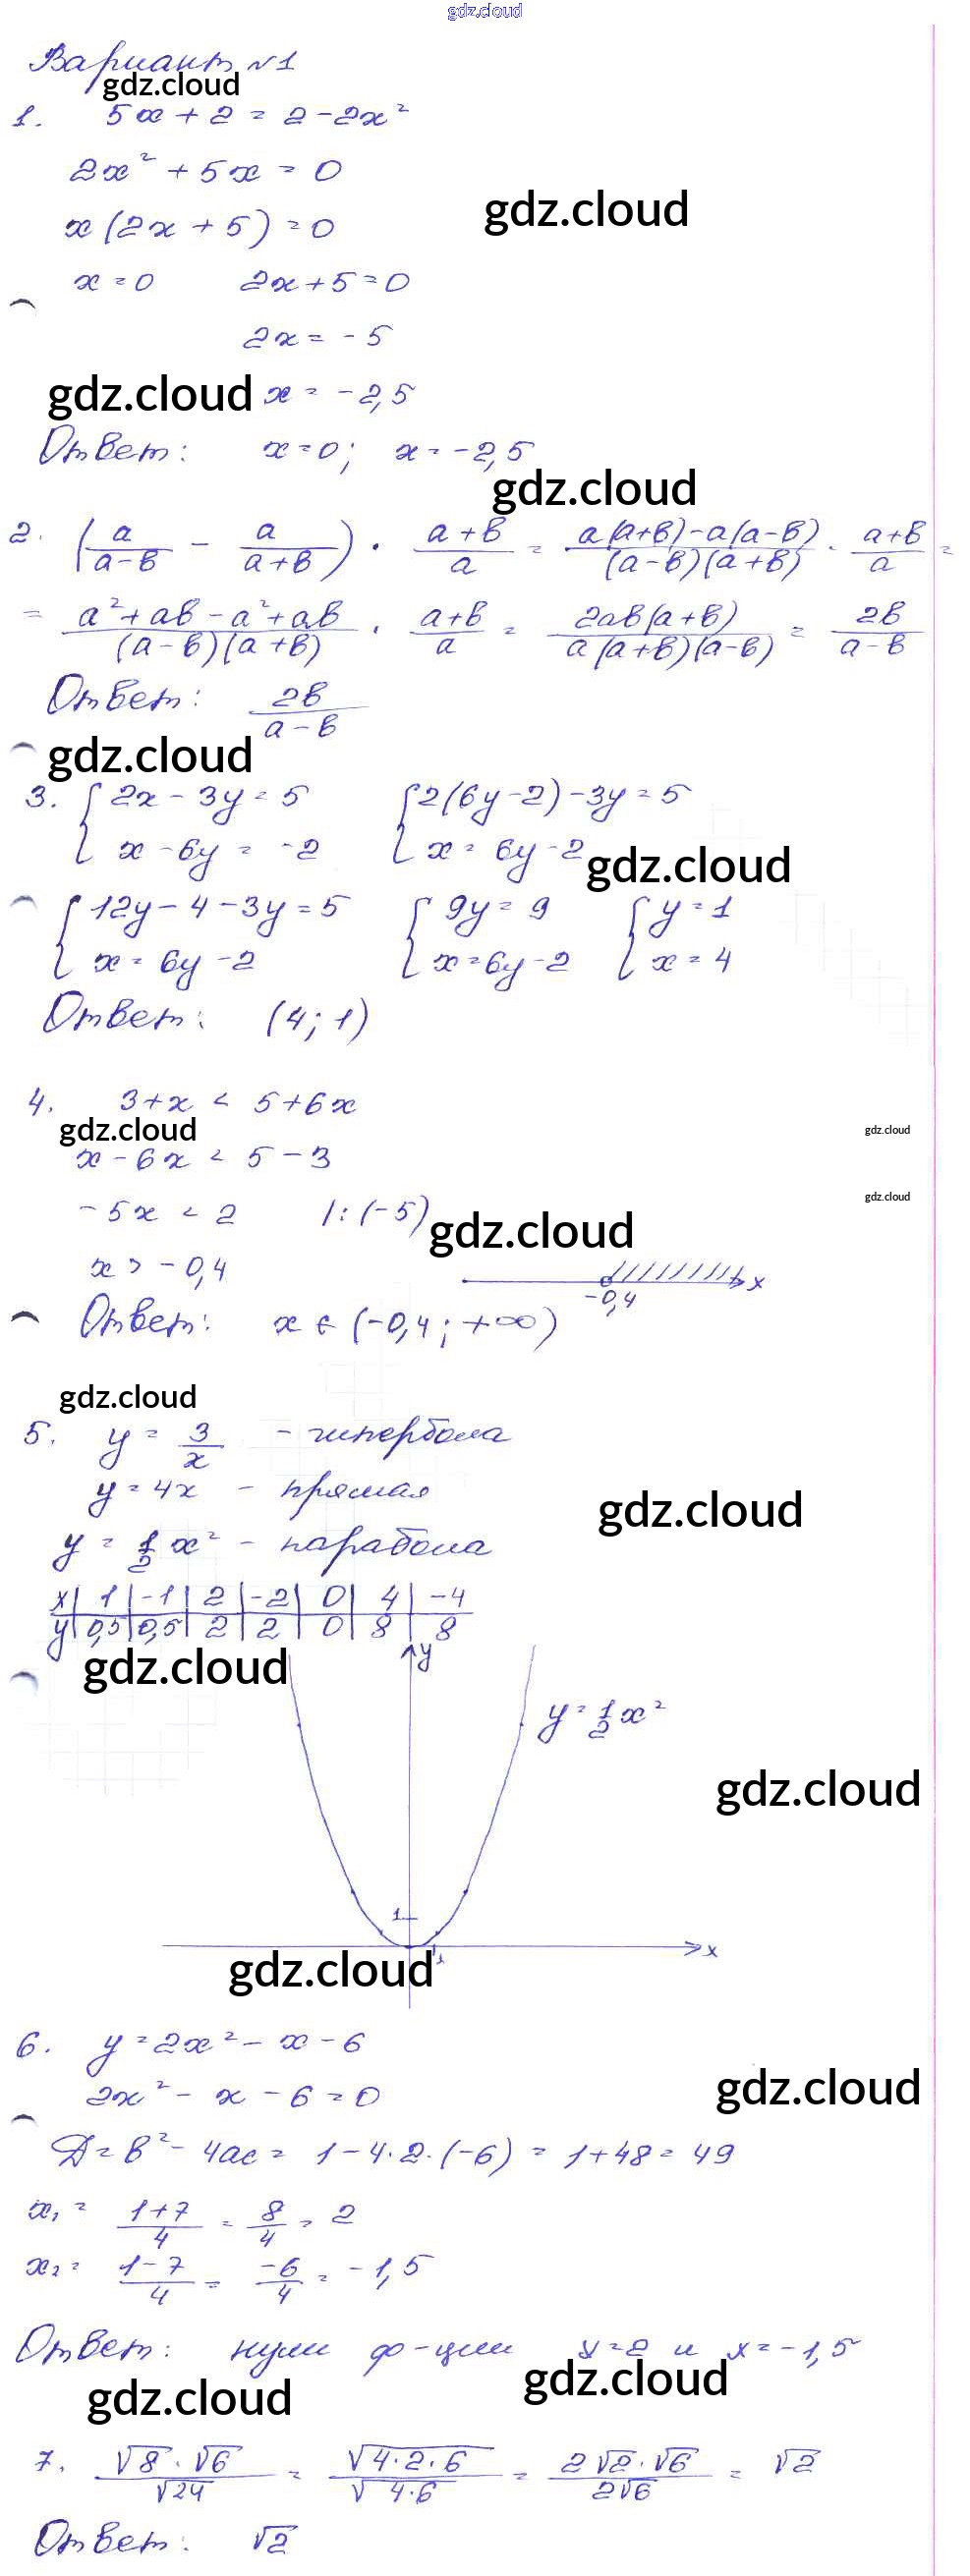 gdz.cloud
Вариант №1
gdz.cloud
1. 5x + 2 = 2 - 2x²
2x² + 5x = 0
x(2x + 5) = 0
gdz.cloud
x = 0 2x + 5 = 0
2x = -5
gdz.cloud x = -2,5
Ответ: x = 0; x = -2,5
gdz.cloud
2. (a/(a-в) - a/(a+в)) · (a+в)/a = (a(a+в)-a(a-в))/((a-в)(a+в)) · (a+в)/a =
= (a²+aв-a²+aв)/((a-в)(a+в)) · (a+в)/a = 2aв(a+в)/(a(a+в)(a-в)) = 2в/(a-в)
Ответ: 2в/(a-в)
gdz.cloud
3. { 2x - 3y = 5 { 2(6y-2)-3y = 5
x - 6y = -2 x = 6y-2
gdz.cloud
{ 12y - 4 - 3y = 5 { 9y = 9 { y = 1
x = 6y - 2 x = 6y-2 x = 4
Ответ: (4; 1)
4. 3+x < 5+6x
gdz.cloud gdz.cloud
x - 6x < 5 - 3
gdz.cloud
-5x < 2 |:(-5)
gdz.cloud
x > -0,4 x
-0,4
Ответ: x ∈ (-0,4; +∞)
gdz.cloud
5. y = 3/x - гипербола
y = 4x - прямая
gdz.cloud
y = 1/2 x² - парабола
x | 1 | -1 | 2 | -2 | 0 | 4 | -4
y | 0,5 | 0,5 | 2 | 2 | 0 | 8 | 8
gdz.cloud y
y = 1/2 x²
gdz.cloud
1
x
1
gdz.cloud
6. y = 2x² - x - 6
2x² - x - 6 = 0
gdz.cloud
Д = в² - 4ac = 1 - 4·2·(-6) = 1+48 = 49
x₁ = (1+7)/4 = 8/4 = 2
x₂ = (1-7)/4 = -6/4 = -1,5
Ответ: нули ф-ции y=2 и x=-1,5
gdz.cloud
gdz.cloud
7. (√8 · √6)/√24 = √(4·2·6)/√(4·6) = (2√2·√6)/(2√6) = √2
Ответ: √2